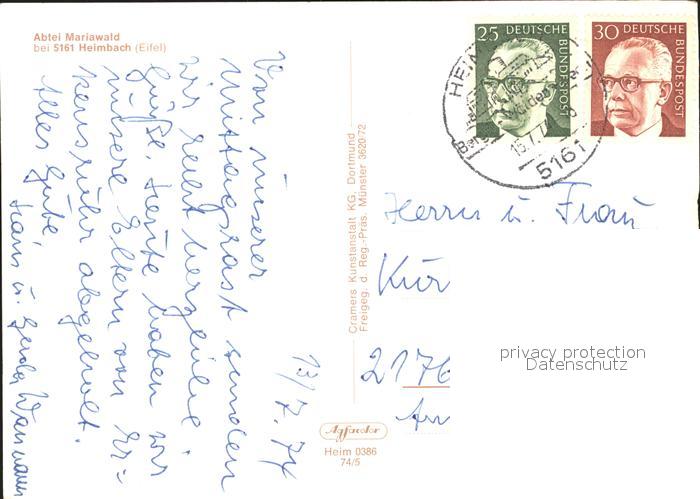 Abtei Mariawald
bei 5161 Heimbach (Eifel)
Von unserer
Mittagsrast senden
wir recht herzliche
Grüße. Heute haben wir
unsere Eltern von
abgeholt.
Alles Gute
Hans u. Gerda
13/7.74
Cramers Kunstanstalt KG, Dortmund
Freigeg. d. Reg.-Präs. Münster 3620/72
Agfacolor
Heim 0386
74/5
25 DEUTSCHE
BUNDESPOST
30 DEUTSCHE
BUNDESPOST
HEIM
5161
Herrn u. Frau
Kur
2176
privacy protection
Datenschutz